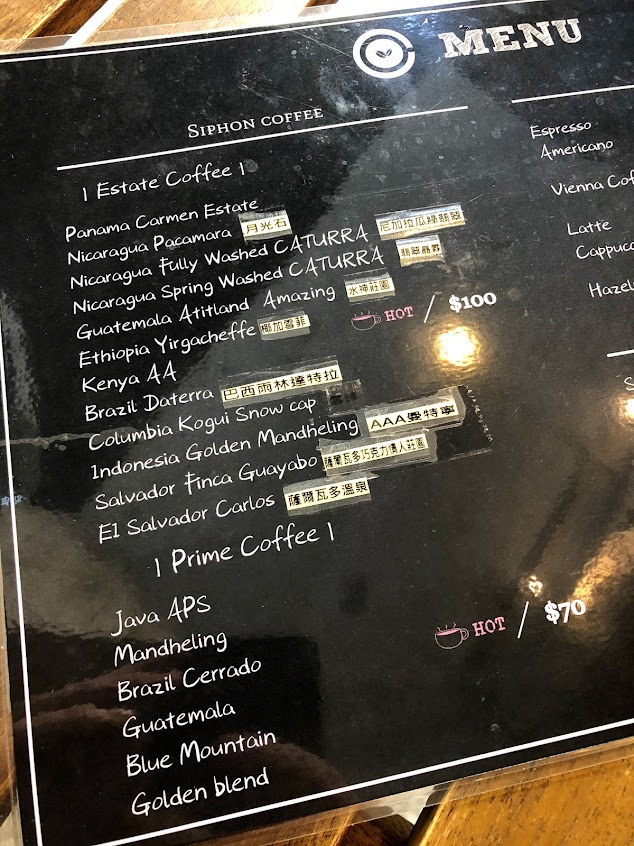 MENU
SIPHON COFFEE
| Estate Coffee |
Panama Carmen Estate
Nicaragua Pacamara 月光石
Nicaragua Fully Washed CATURRA 尼加拉瓜綠翡翠
Nicaragua Spring Washed CATURRA
Guatemala Atitland Amazing 水神莊園
Ethiopia Yirgacheffe 椰加雪菲
HOT / $100
Kenya AA
Brazil Daterra 巴西雨林達特拉
Columbia Kogui Snow cap
Indonesia Golden Mandheling AAA曼特寧
Salvador Finca Guayabo 薩爾瓦多巧克力情人莊園
El Salvador Carlos 薩爾瓦多溫泉
| Prime Coffee |
Java APS
Mandheling
Brazil Cerrado
HOT / $70
Guatemala
Blue Mountain
Golden blend
Espresso
Americano
Vienna Cof
Latte
Cappucc
Hazel